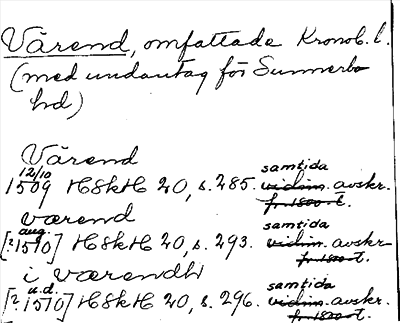 Värend, omfattade Kronob. l.
(med undantag för Sunnerbo
hd)
Värend
12/10
1509 HSkH 20, s. 285. vidim. avskr.
samtida
fr. 1500-t.
værend
aug.
[?1510] HSkH 20, s. 293. vidim. avskr
samtida
fr. 1500-t.
i værendh
u.d.
[?1510] HSkH 20, s. 296. vidim. avskr.
samtida
fr. 1500-t.